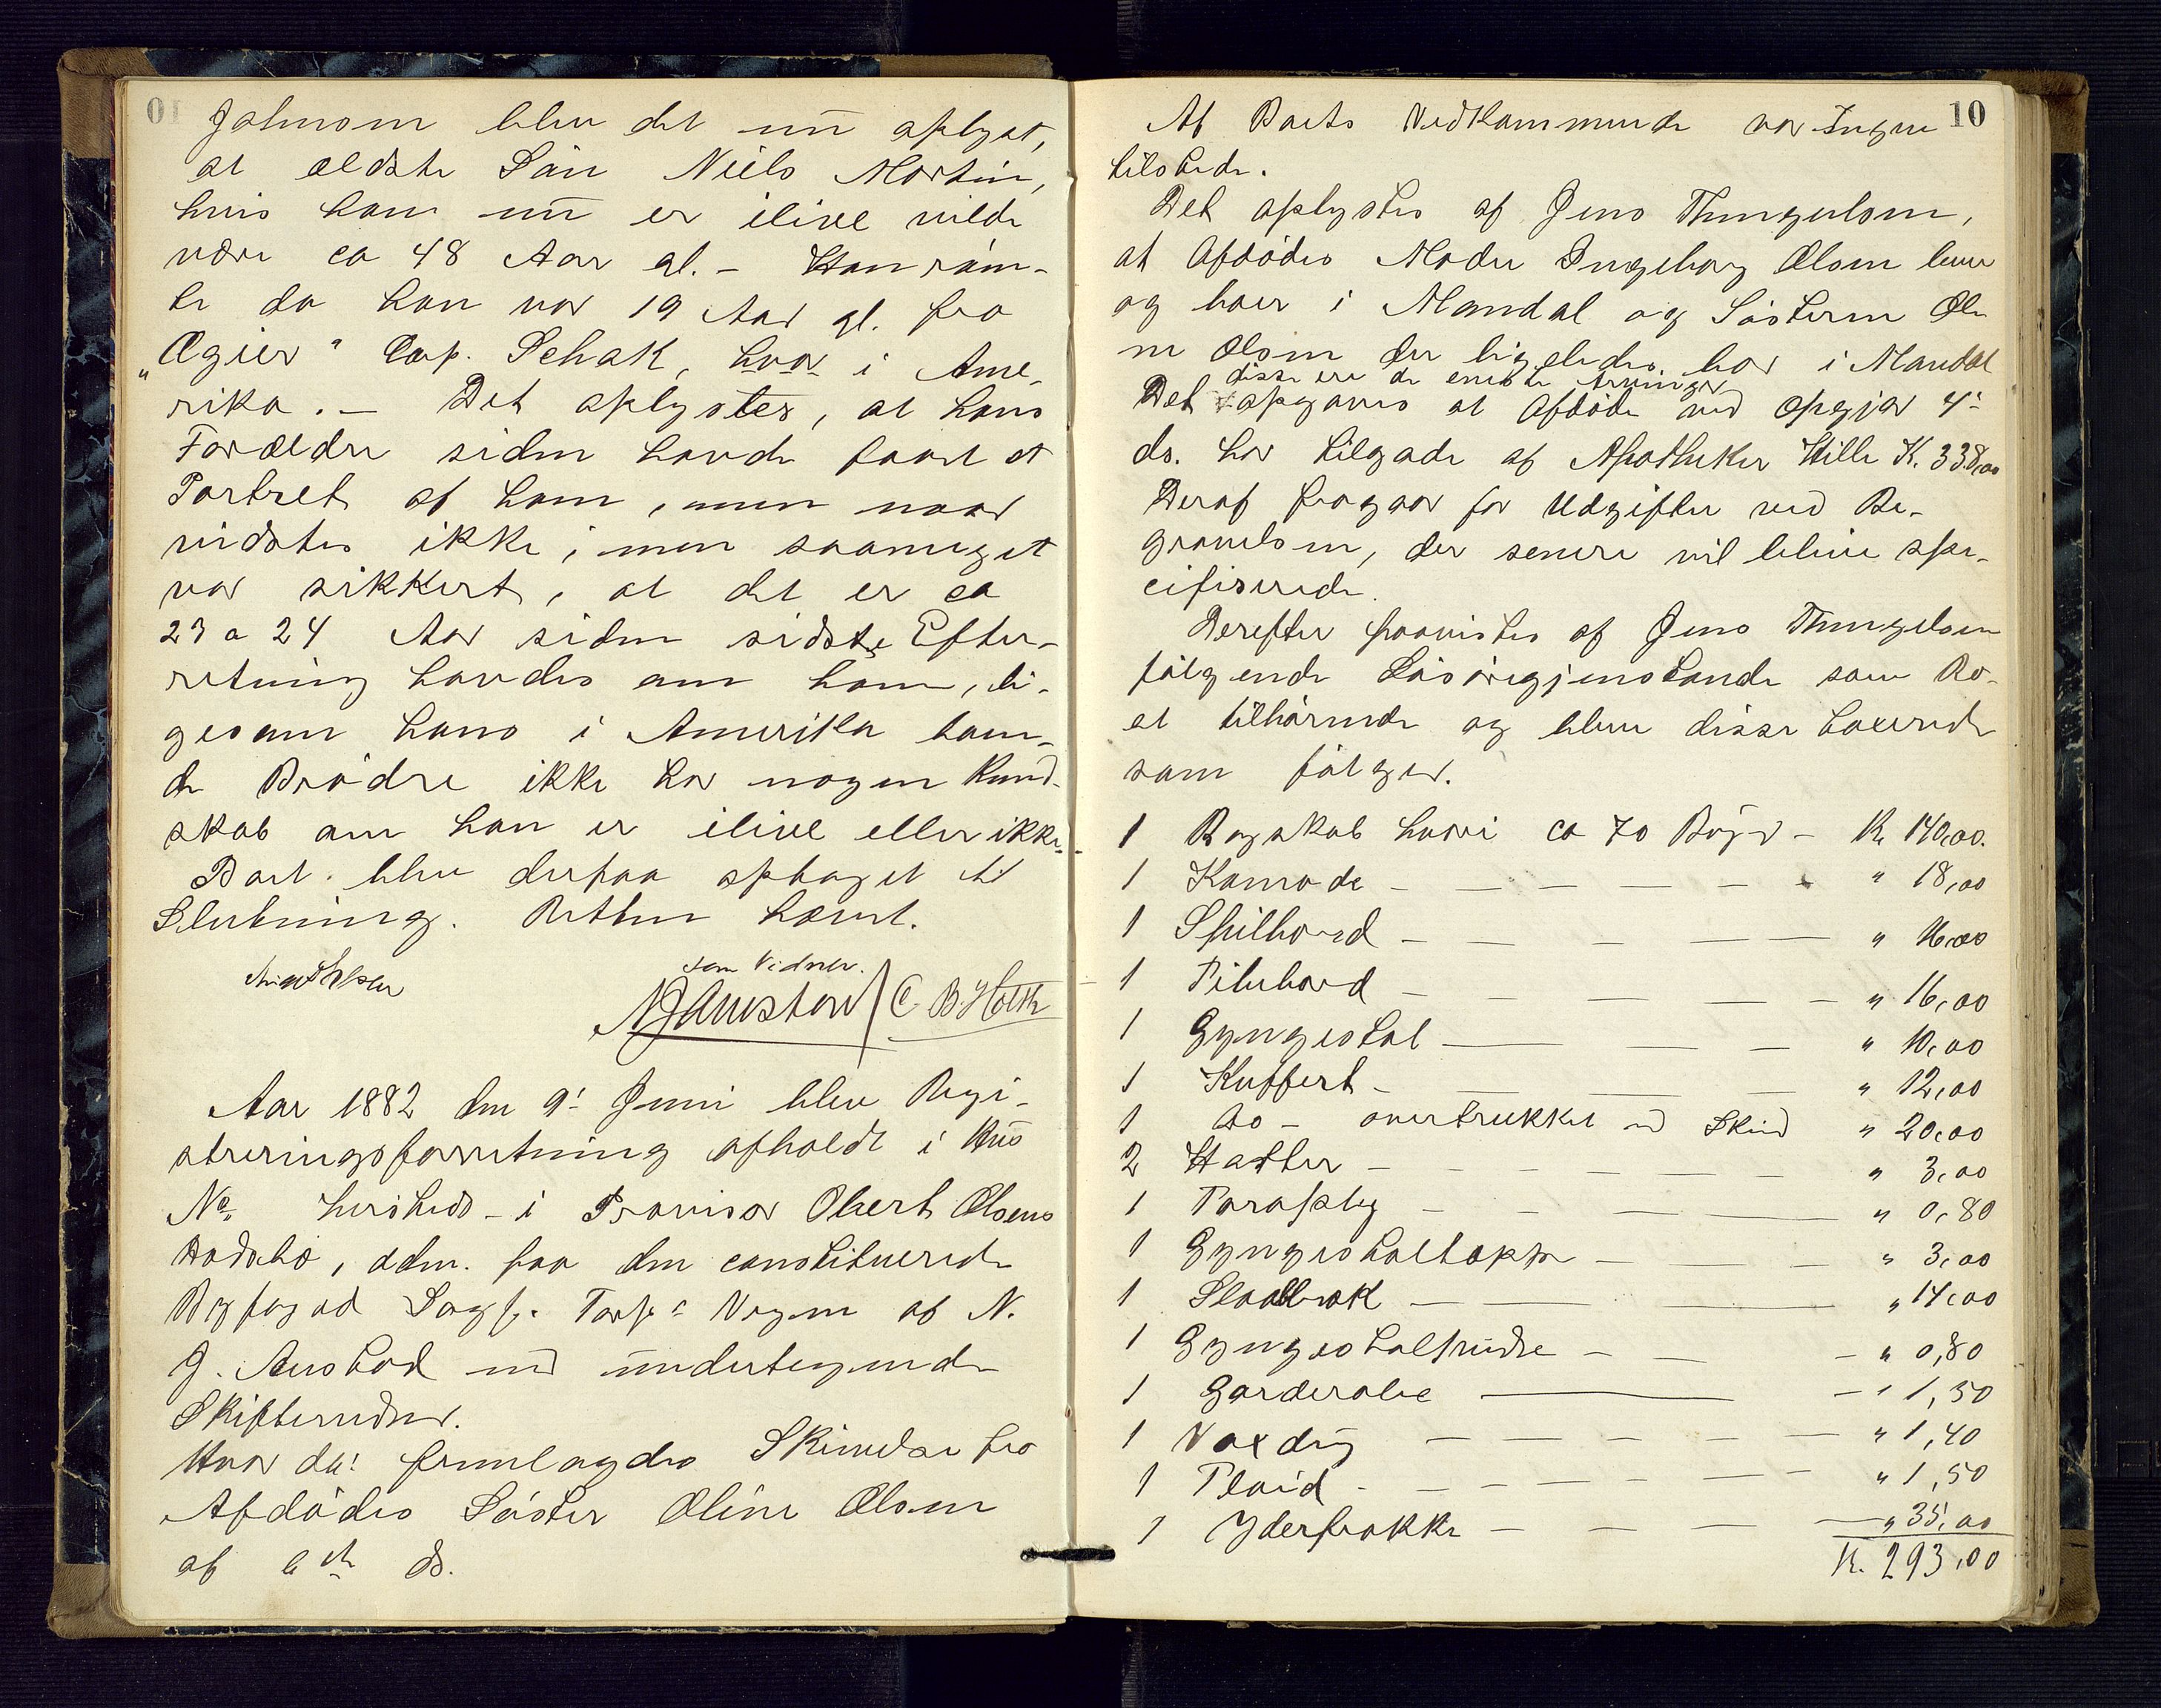 Johnsen blev det nu oplyst,
at ældste Sön Niels Martin,
hvis han nu er ilive vilde
være ca 48 Aar gl. - Han röm-
te da han var 19 Aar gl. fra
„Ægier" Cap. Schak, hvor i Ame-
rika. - Det oplystes, at hans
Forældre siden havde faaet et
Portret af ham, men naar
vidstes ikke; men saameget
var sikkert, at det er ca
23 a 24 Aar siden sidste Efter-
retning havdes om ham, li-
gesom hans i Amerika bœn-
de Brödre ikke har nogen Kund-
skab om han er ilive eller ikke.
Boet blev derpaa optaget til
Slutning. Retten hævet.
Som Vidner.
N J Aunstow / C. B. Holth
Aar 1882 den 9' Juni blev Regi-
streringsforretning afholdt i Hus
No. hersteds - i Provisor Olbert Olsens
Dödsbo, adm. paa den constituerede
Byfoged Sagf. Vegne af N.
J. Austad med undertegnede
Skiftevidner.
Hvor da: fremlagdes Skrivelse fra
Afdödes Söster Oline Olsen
af 6 de ds.
10
Af Boets Vedkommende var Ingen
tilstede.
Det oplystes af Jens Thengelsen,
at Afdödes Moder Ingeborg Olsen lever
og boer i Mandal og Södteren Oli
ne Olsen der ligeledes bor i Mandal
disse ere de eneste Arvinger
Det opgaves at Afdöde ved Opgjör 4'
ds. har tilgode af Apotheker Hille K. 338,00
Deraf fragaar for Udgifter ved Be-
gravelsen, der senere vil blive spe-
cifiserede.
Derefter paavistes af Jens Thengelsen
fölgende Lösöregjenstande som Bo-
et tilhörende og blev disse taxerede
som fölger.
1 Bogskab hvori ca 70 Böger - Kr 140,00.
1 Komode - " 18,00
1 Spillbord - " 16,00
1 Pibebord - " 16,00
1 Gyngestol - " 10,00
1 Kuffert - " 12,00
1 do - overtrukket md Skind " 20,00
2 Hatter - " 3,00
1 Paraply - " 0,80
1 Gyngestoltæppe - " 3,00
1 Slaabrok - " 14,00
1 Gyngestolpude - " 0,80
1 Garderobe - " 1,50
1 Voxdug - " 1,40
1 Plaid - " 1,50
1 Yderfrakke - " 35,00
Kr. 293,00